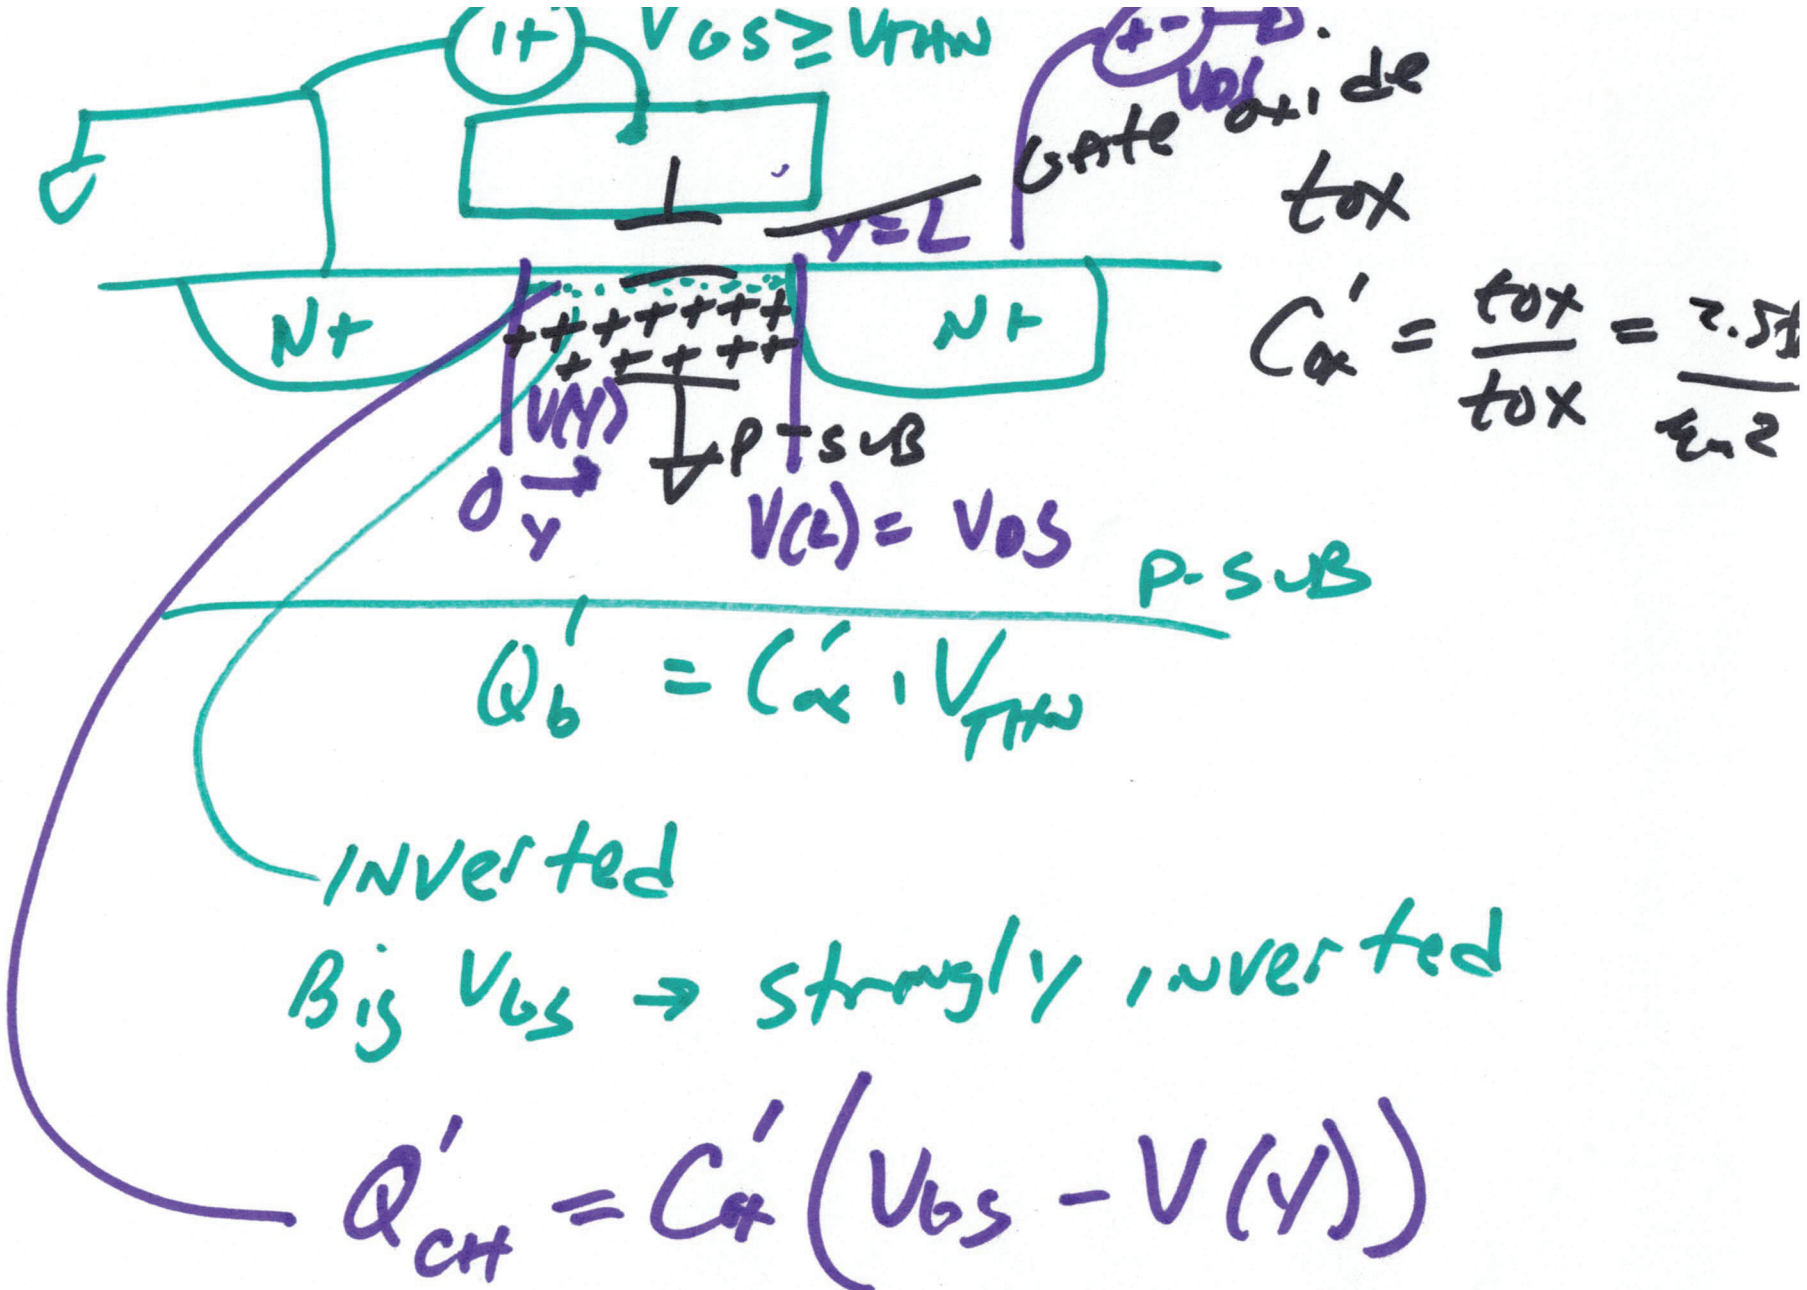 VGS ≥ VTHN
VDS
Gate oxide
tox
y=L
N+
N+
C'ox = tox/tox = 2.5
V(y)
P-sub
0 → y
V(L) = VDS
P-sub
Q'b = C'ox · VTHN
INVerted
Big VGS → strongly INVerted
Q'CH = C'ox (VGS - V(y))